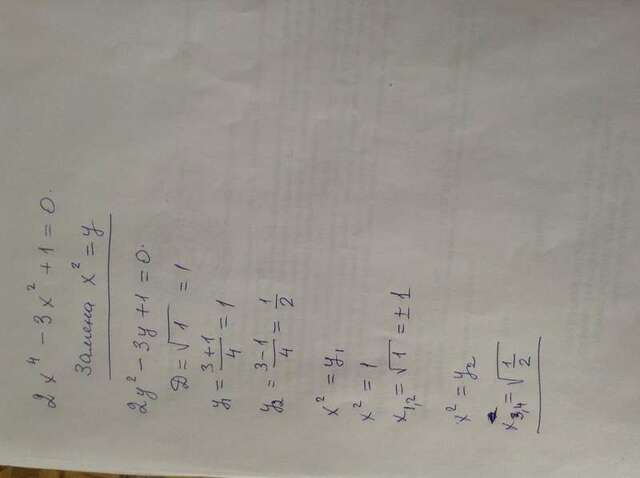 2x⁴ − 3x² + 1 = 0.
Замена x² = y
2y² − 3y + 1 = 0.
D = √1 = 1
y₁ = (3+1)/4 = 1
y₂ = (3−1)/4 = 1/2
x² = y₁
x² = 1
x₁,₂ = √1 = ± 1
x² = y₂
x₃,₄ = √(1/2)